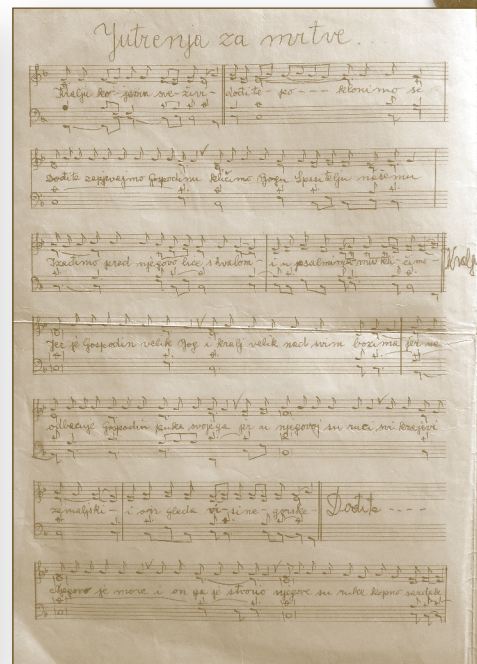 Jutrenja za mrtve...
Kralju ko-jem sve živi- dođite-po---klonimo se
Dođite zapjevajmo Gospodinu kličimo Bogu Spasitelju našemu
Izađimo pred njegovo lice s hvalom- i u psalmima mu kli-čimo Kralju
Jer je Gospodin velik Bog i kralj velik nad svim bozima jer ne
odbacuje Gospodin puka svojega jer u njegovoj su ruci svi krajevi
zemaljski- i on gleda vi-sine-gorske- Dođite----
Njegovo je more i on ga je stvorio njegove su ruke kopno sazdale